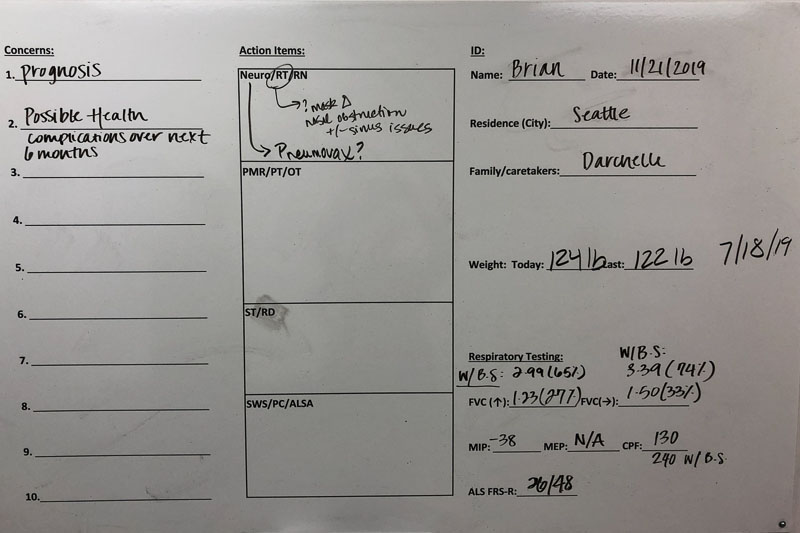 Concerns:
1. Prognosis
2. Possible Health
complications over next
6 months
3.
4.
5.
6.
7.
8.
9.
10.
Action Items:
Neuro/RT/RN
→ ? mask Δ
nasal obstruction
+/- sinus issues
→ Pneumovax?
PMR/PT/OT
ST/RD
SWS/PC/ALSA
ID:
Name: Brian Date: 11/21/2019
Residence (City): Seattle
Family/caretakers: Darcnelle
Weight: Today: 124 lb Last: 122 lb 7/18/19
Respiratory Testing: W/B.S:
W/B.S: 2.99 (65%) 3.39 (74%)
FVC (↑): 1.23 (27%) FVC(→): 1.50 (33%)
MIP: -38 MEP: N/A CPF: 130
240 W/B.S.
ALS FRS-R: 26/48